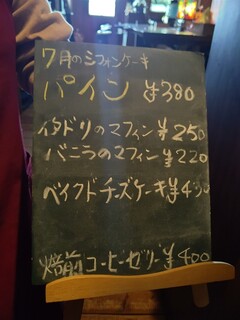 7月のシフォンケーキ
パイン ¥380
イタドリのマフィン ¥250
バニラのマフィン ¥220
ベイクドチーズケーキ ¥430
焙煎コーヒーゼリー ¥400